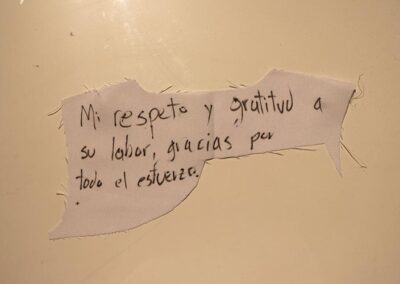 Mi respeto y gratitud a
su labor, gracias por
todo el esfuerzo.